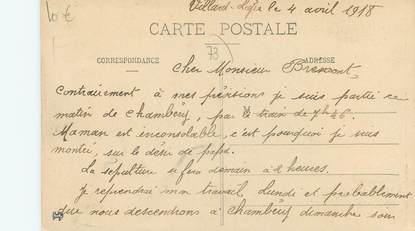 10 €
Villard- le 4 avril 1918
CARTE POSTALE
73
CORRESPONDANCE ADRESSE
Cher Monsieur Bremont,
Contrairement à mes prévisions je suis partie ce
matin de Chambéry, par le train de 7h 46.
Maman est inconsolable, c'est pourquoi je suis
montée, sur le désir de papa.
La sépulture se fera demain à 2 heures.
Je reprendrai mon travail, Lundi et probablement
que nous descendrons à Chambéry dimanche soir